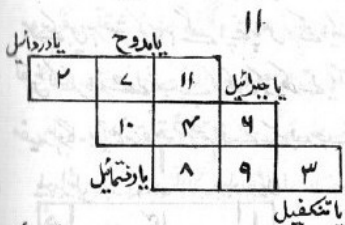 ۱۱
یا دردائیل یا بدوح
۲ ۷ ۱۱ یا جبرائیل
۱۰ ۴ ۶
یا رفتمائیل ۸ ۹ ۳
یا تنکفیل